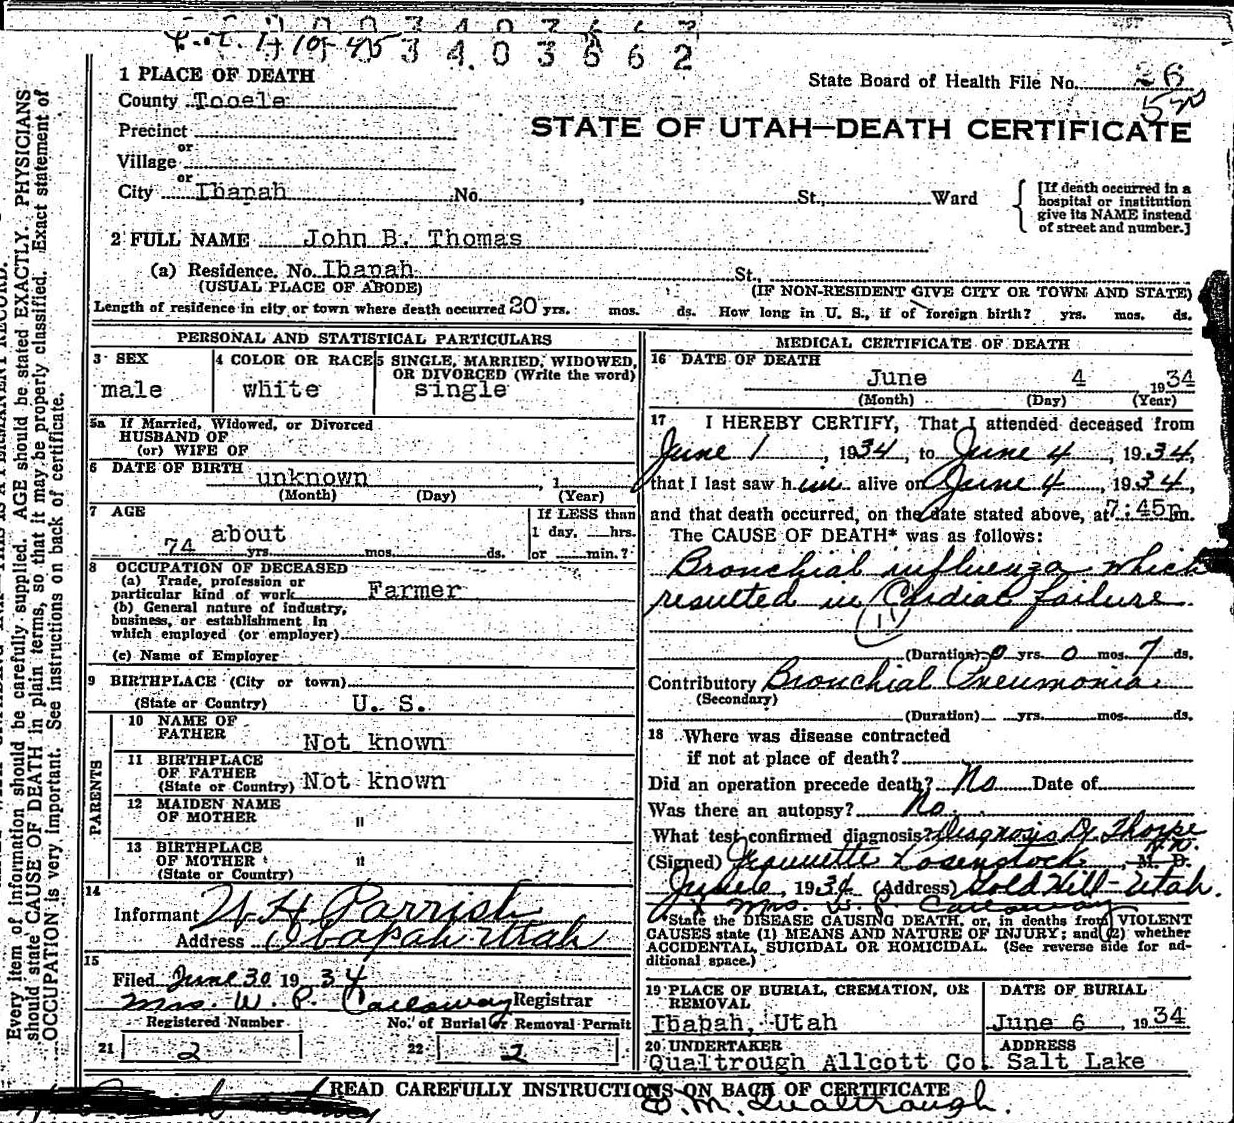 3 4 0 3 6 6 2
1 PLACE OF DEATH
State Board of Health File No. 26
County Tooele
STATE OF UTAH—DEATH CERTIFICATE
Precinct
or
Village
or
City Ibapah No. , St., Ward
[If death occurred in a hospital or institution give its NAME instead of street and number.]
2 FULL NAME John B. Thomas
(a) Residence. No. Ibapah St.,
(USUAL PLACE OF ABODE) (IF NON-RESIDENT GIVE CITY OR TOWN AND STATE)
Length of residence in city or town where death occurred 20 yrs. mos. ds. How long in U. S., if of foreign birth? yrs. mos. ds.
PERSONAL AND STATISTICAL PARTICULARS
3 SEX
male
4 COLOR OR RACE
white
5 SINGLE, MARRIED, WIDOWED,
OR DIVORCED (Write the word)
single
5a If Married, Widowed, or Divorced
HUSBAND OF
(or) WIFE OF
6 DATE OF BIRTH unknown , 1
(Month) (Day) (Year)
7 AGE
about
74 yrs. mos. ds.
If LESS than
1 day, hrs.
or min.?
8 OCCUPATION OF DECEASED
(a) Trade, profession or
particular kind of work Farmer
(b) General nature of industry,
business, or establishment in
which employed (or employer)
(c) Name of Employer
9 BIRTHPLACE (City or town)
(State or Country) U. S.
PARENTS
10 NAME OF
FATHER Not known
11 BIRTHPLACE
OF FATHER
(State or Country) Not known
12 MAIDEN NAME
OF MOTHER "
13 BIRTHPLACE
OF MOTHER "
(State or Country)
14
Informant W H Parrish
Address Ibapah Utah
15
Filed June 30 1934
Mrs. W. P. Callaway Registrar
Registered Number No. of Burial or Removal Permit
21 2 22 2
MEDICAL CERTIFICATE OF DEATH
16 DATE OF DEATH
June 4 1934
(Month) (Day) (Year)
17 I HEREBY CERTIFY, That I attended deceased from
June 1, 1934, to June 4, 1934,
that I last saw him alive on June 4, 1934,
and that death occurred, on the date stated above, at 7:45p m.
The CAUSE OF DEATH* was as follows:
Bronchial influenza which
resulted in Cardiac failure.
(Duration) 0 yrs. 0 mos. 7 ds.
Contributory Bronchial Pneumonia
(Secondary)
(Duration) yrs. mos. ds.
18 Where was disease contracted
if not at place of death?
Did an operation precede death? No Date of
Was there an autopsy? No.
What test confirmed diagnosis? Diagnosis Dr. Thorpe
(Signed) Rosenstock R.N. M. D.
June 6, 1934 (Address) Gold Hill-Utah.
Mrs. W. P. Callaway
*State the DISEASE CAUSING DEATH, or, in deaths from VIOLENT
CAUSES state (1) MEANS AND NATURE OF INJURY; and (2) whether
ACCIDENTAL, SUICIDAL OR HOMICIDAL. (See reverse side for ad-
ditional space.)
19 PLACE OF BURIAL, CREMATION, OR
REMOVAL
Ibapah, Utah
DATE OF BURIAL
June 6, 1934
20 UNDERTAKER
Qualtrough Allcott Co.
ADDRESS
Salt Lake
READ CAREFULLY INSTRUCTIONS ON BACK OF CERTIFICATE
O. M. Qualtrough.
Every item of information should be carefully supplied. AGE should be stated EXACTLY. PHYSICIANS
should state CAUSE OF DEATH in plain terms, so that it may be properly classified. Exact statement of
OCCUPATION is very important. See instructions on back of certificate.